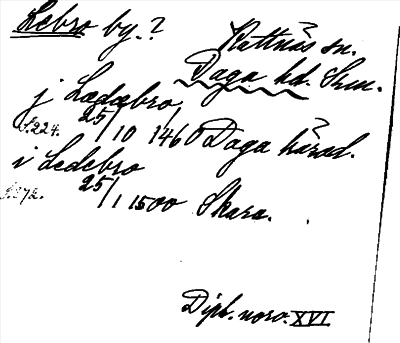 Lebro by.? Kattnäs sn.
Daga hd. Srm.
j Lædæbro,
S. 224. 25/10 1460 Daga härad.
i Ledebro
S. 272. 25/1 1500 Skara.
Dipl. norv. XVI